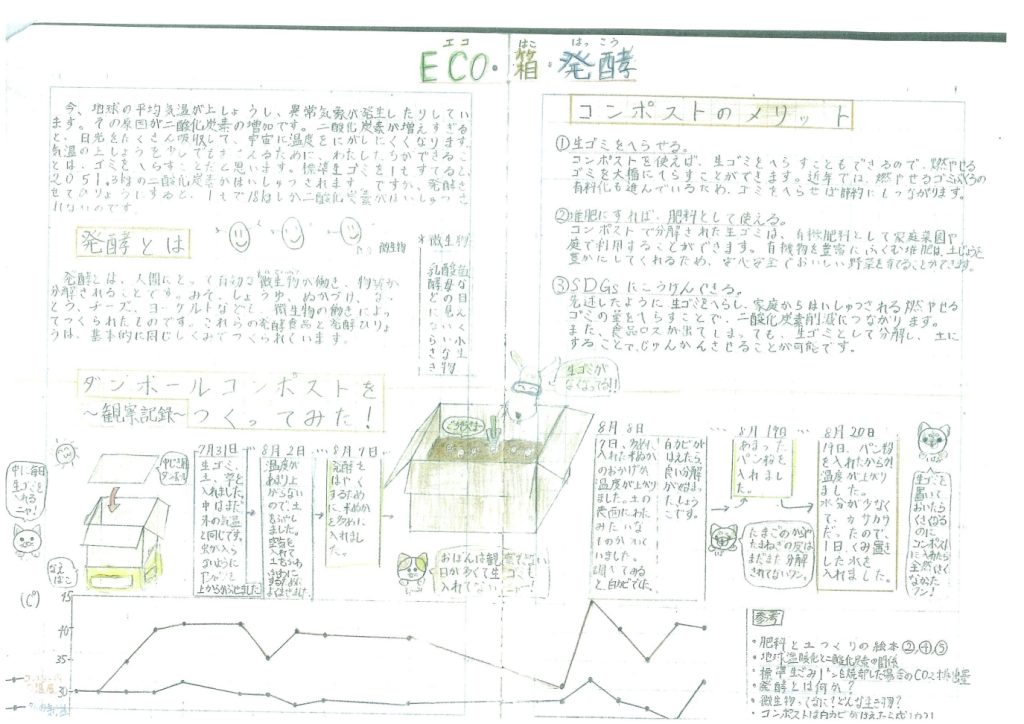 エコ はこ はっこう
ECO・箱・発酵
今、地球の平均気温が上しょうし、異常気象が発生したりしてい
ます。その原因が二酸化炭素の増加です。二酸化炭素が増えすぎる
と、日光をたくさん吸収して、宇宙に温度をにがしにくくなります。
気温の上しょうを少しでもおさえるために、わたしたちができるこ
とは、ゴミをへらすことだと思います。標準生ゴミを1tすてると、
2051.3kgの二酸化炭素がはいしゅつされます。ですが、発酵さ
せてひりょうにすると、1tで18kgしか二酸化炭素がはいしゅつさ
れないのです。
発酵とは
微生物
発酵とは、人間にとって有効な微生物が働き、物質が
分解されることです。みそ、しょうゆ、ぬかづけ、なっ
とう、チーズ、ヨーグルトなども、微生物の働きによっ
てつくられたものです。これらの発酵食品と発酵ひりょ
うは、基本的に同じしくみでつくられています。
*微生物
乳酸菌
酵母な
どの目
に見え
ないく
らい小
さな生
き物
コンポストのメリット
①生ゴミをへらせる。
コンポストを使えば、生ゴミをへらすこともできるので、燃やせる
ゴミを大幅にへらすことができます。近年では、燃やせるゴミぶくろの
有料化も進んでいるため、ゴミをへらせば節約にもつながります。
②堆肥にすれば、肥料として使える。
コンポストで分解された生ゴミは、有機肥料として家庭菜園や
庭で利用することができます。有機物を豊富にふくむ堆肥は、土じょうを
豊かにしてくれるため、安心安全でおいしい野菜を育てることができます。
③SDGsにこうけんできる。
先述したように生ゴミをへらし、家庭からはいしゅつされる燃やせる
ゴミの量をへらすことで、二酸化炭素削減につながります。
また、食品ロスが出てしまっても、生ゴミとして分解し、土に
することで、じゅんかんさせることが可能です。
ダンボールコンポストを
~観察記録~つくってみた!
生ゴミが
なくなってる!!
中に毎日
生ゴミを
入れる
ニャ!
なえ
ばこ
7月31日
生ゴミ、
土、草を
入れました。
中はまだ
外の気温
と同じです。
虫が入ら
ないように
上からかぶせました
8月2日
温度が
あまり上
がらない
ので、土
をふやし
ました。
空気を
入れて
8月9日
発酵を
はやく
するため
に、米ぬか
を多めに
入れまし
た。
おぼんは観察でない
日が多くて生ゴミも
入れてないニャー!
8月8日
7日、多めに
入れた米ぬか
のおかげか、
温度が上がり
ました。土の
表面にわた
みたいな
ものがついて
いました。
調べてみる
と白カビでした。
白カビが
はえたら、
良い分解
が始まっ
たしょう
こです。
8月19日
あまった
パン粉を
入れまし
た。
たまごのからや
たまねぎの皮は
まだまだ分解
されてないワン。
8月20日
19日、パン粉
を入れたからか
温度が上がり
ました。
水分が少なく
て、カサカサ
だったので、
1日、くみ置き
した水を
入れました。
生ゴミを
置いて
おいたら
くさくなる
のに
コンポスト
に入れたら
全然くさく
なかった
ワン!
(C°)
45
40
35
30
参考
・肥料と土つくりの絵本②,④,⑤
・地球温暖化と二酸化炭素の関係
・標準生ごみ1tンを焼却した場合のCO2排出量
・発酵とは何か?
・微生物ってなに!どんな生き物?
・コンポストは白カビがはえたら成功!?